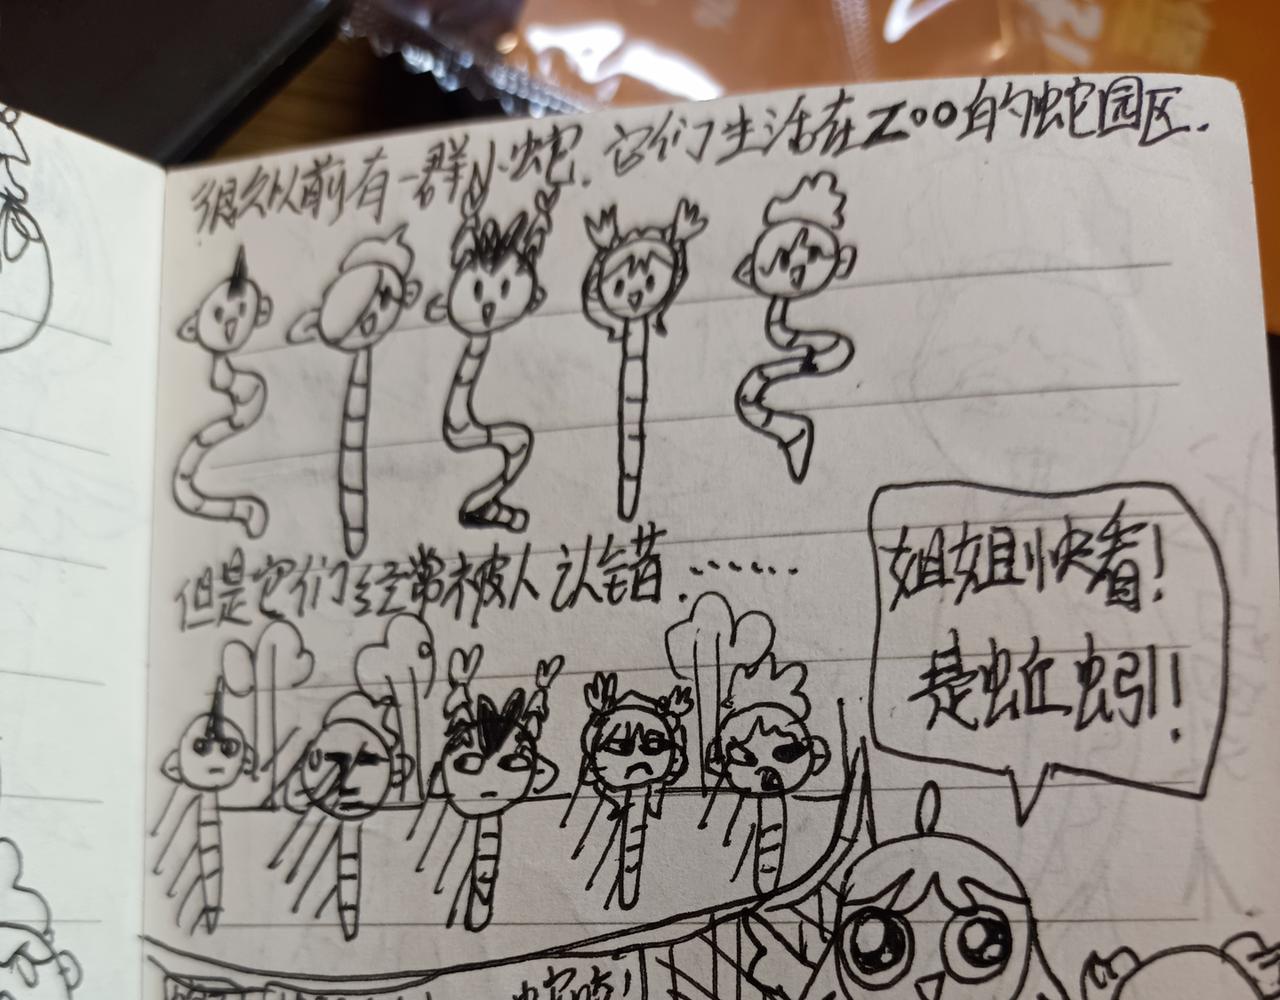 很久以前有一群小蛇.它们生活在Zoo的蛇园区.
但是它们经常被人认错.……
姐姐快看!
是蚯蚓!